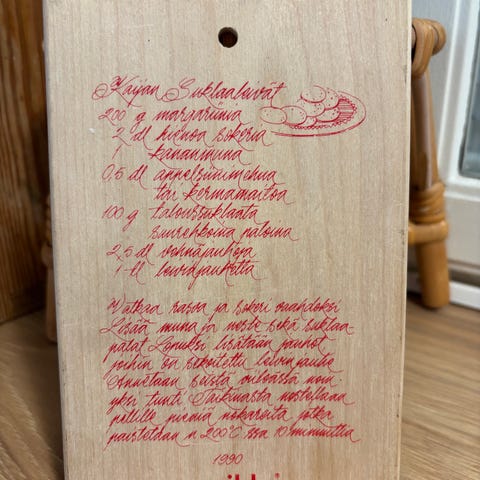 Kaijan Suklaaleivät
200 g margariinia
2 dl hienoa sokeria
1 kananmuna
0,5 dl appelsiinimehua
tai kermamaitoa
100 g taloussuklaata
suurehkoina paloina
2,5 dl vehnäjauhoja
1 tl leivinjauhetta
Vatkaa rasva ja sokeri vaahdoksi
Lisää muna ja neste sekä suklaa-
palat Lopuksi lisätään jauhot
joihin on sekoitettu leivinjauhe
Annetaan seistä viileässä noin
yksi tunti Taikinasta nostellaan
pellille pieniä nokareita jotka
paistetaan n 200°C ssa 10 minuuttia
1990